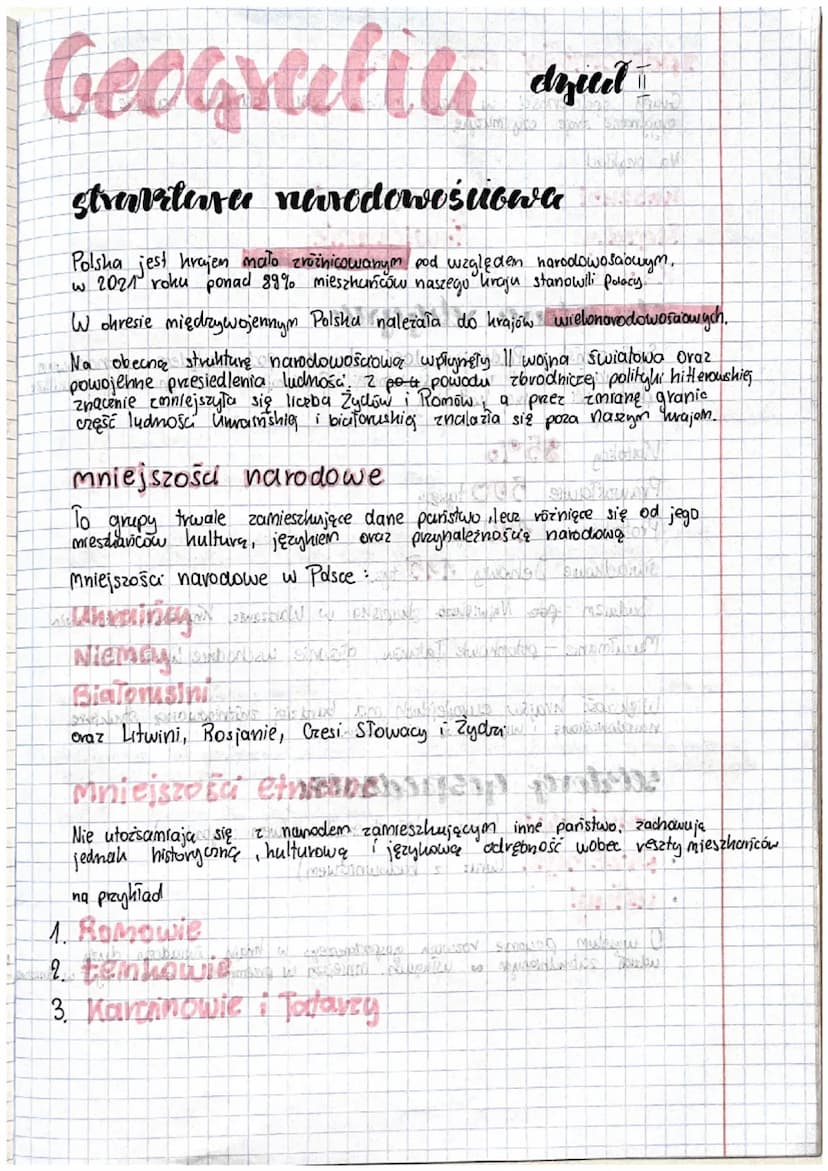 Geografia dział II
struktura narodowościowa
Polska jest krajem mało zróżnicowanym pod względem narodowościowym.
w 2021 roku ponad 99% mieszkańców naszego kraju stanowili Polacy.
W okresie międzywojennym Polska należała do krajów wielonarodowościowych.
Na obecną strukturę narodowościową wpłynęły II wojna światowa oraz
powojenne przesiedlenia ludności. Z powodu zbrodniczej polityki hitlerowskiej
znacznie zmniejszyła się liczba Żydów i Romów, a przez zmianę granic
część ludności ukraińskiej i białoruskiej znalazła się poza naszym krajem.
mniejszości narodowe
To grupy trwale zamieszkujące dane państwo, lecz różniące się od jego
mieszkańców kulturą, językiem oraz przynależnością narodową
Mniejszości narodowe w Polsce:
Ukraińcy
Niemcy
Białorusini
oraz Litwini, Rosjanie, Czesi Słowacy i Żydzi
Mniejszości etniczne
Nie utożsamiają się z narodem zamieszkującym inne państwo, zachowują
jednak historyczną, kulturową i językową odrębność wobec reszty mieszkańców
na przykład
1. Romowie
2. Łemkowie
3. Karaimowie i Tatarzy